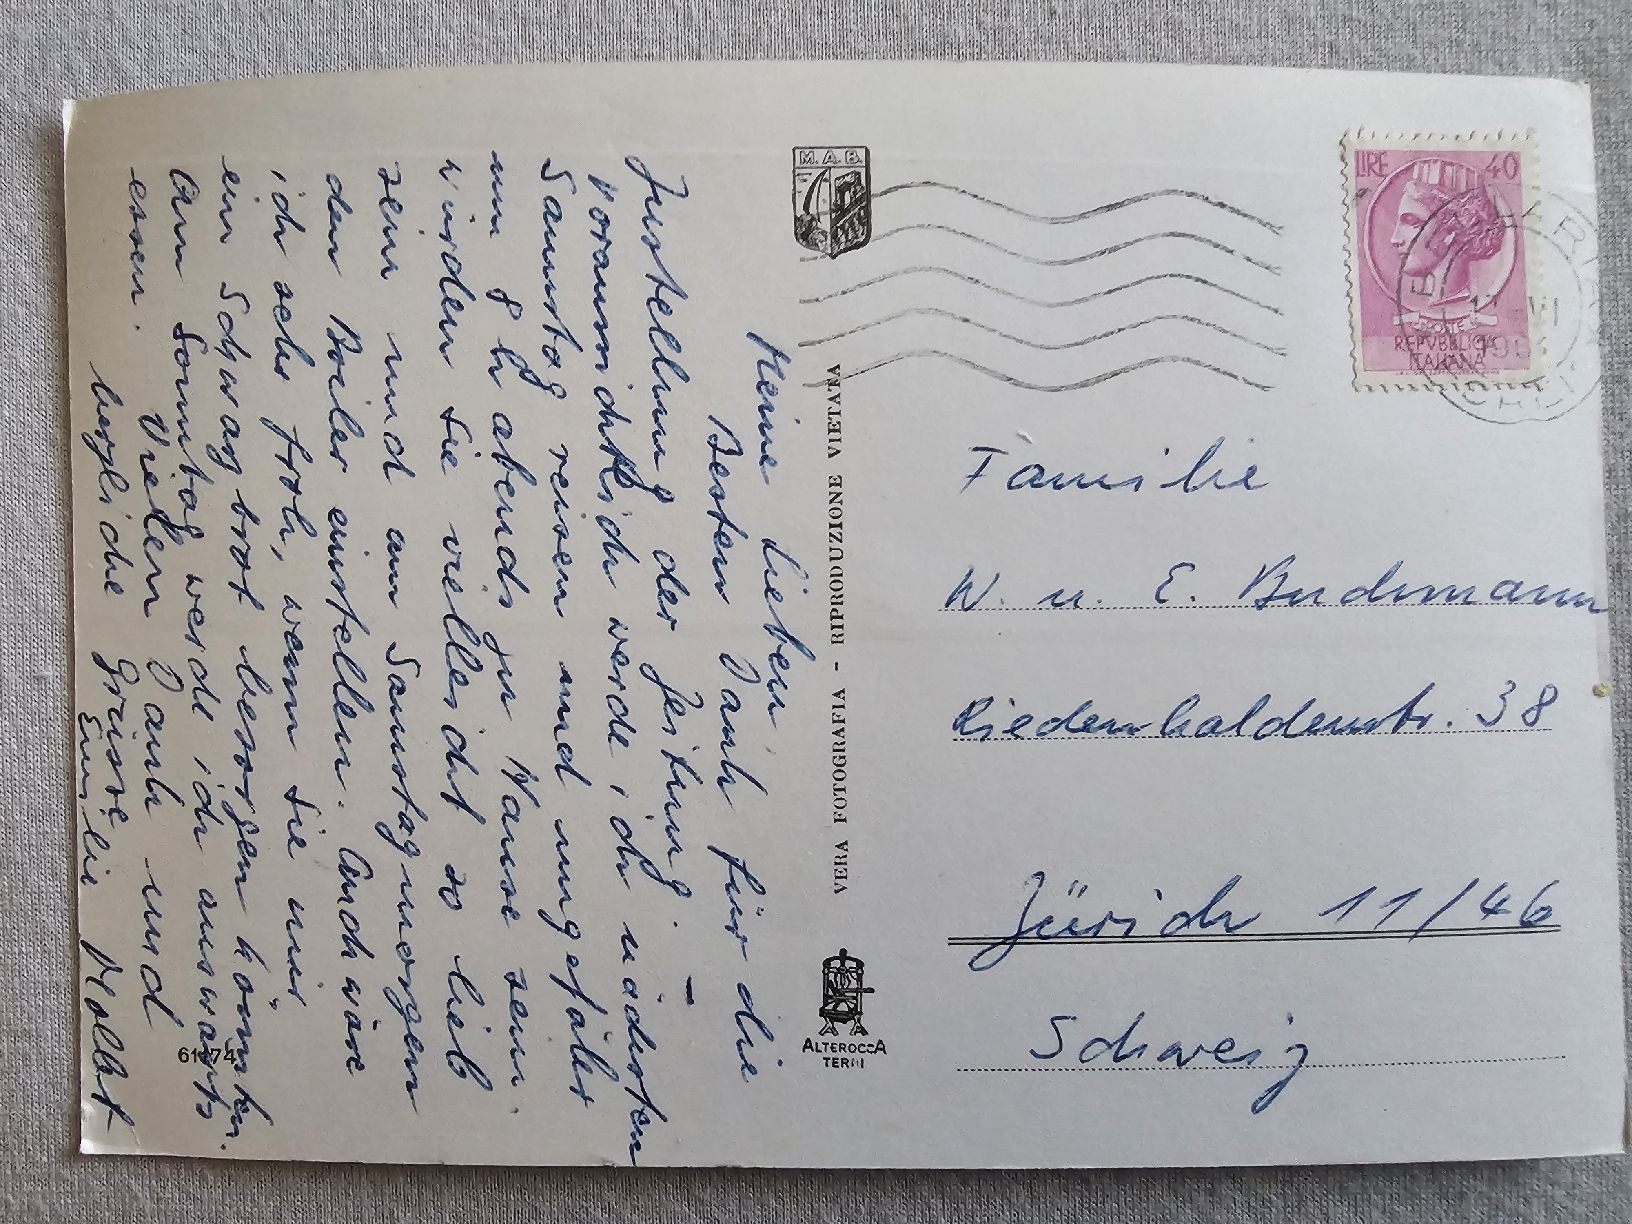 Meine Lieben,
Besten Dank für die
Zustellung der Zeitung. –
Voraussichtlich werde ich nächsten
Samstag reisen und ungefähr
um 8 h abends zu Hause sein.
Würden Sie vielleicht so lieb
sein und am Samstagmorgen
den Boiler einstellen. Auch wäre
ich sehr froh, wenn Sie mir
ein Schwarzbrot besorgen könnten.
Am Sonntag werde ich auswärts
essen.
Vielen Dank und
herzliche Grüsse
Emilie
M.A.B.
VERA FOTOGRAFIA - RIPRODUZIONE VIETATA
ALTEROCCA
TERNI
61174
LIRE 40
POSTE
REPVBBLICA
ITALIANA
Familie
W. u. E. Buchmann
Riedenhaldenstr. 38
Zürich 11/46
Schweiz